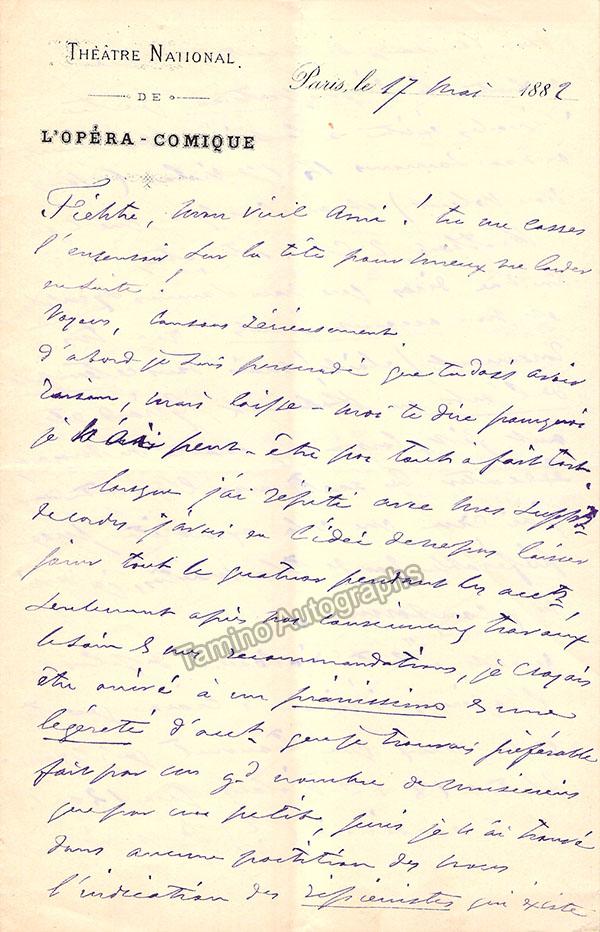 THÉÂTRE NATIONAL
DE
L'OPÉRA-COMIQUE
Paris, le 17 mai 1882
Fichtre, mon vieil ami ! tu me casses
l'encensoir sur la tête pour mieux me larder
ensuite !
Voyons, causons sérieusement.
d'abord je suis persuadé que tu dois avoir
raison, mais laisse-moi te dire pourquoi
je n'ai peut-être pas tout à fait tort.
Lorsque j'ai répété avec mes
de cordes j'avais eu l'idée de ne pas laisser
jouer tout le quatuor pendant les acct.
seulement après nos travaux
le soin & mes recommandations, je croyais
être arrivé à un pianissimo & une
légèreté d'acct. que je trouvais préférable
fait par un gd. nombre de musiciens
que par un petit, puis je n'ai trouvé
dans aucune partition de nous
l'indication des ripiénistes qui existe
Tamino Autographs